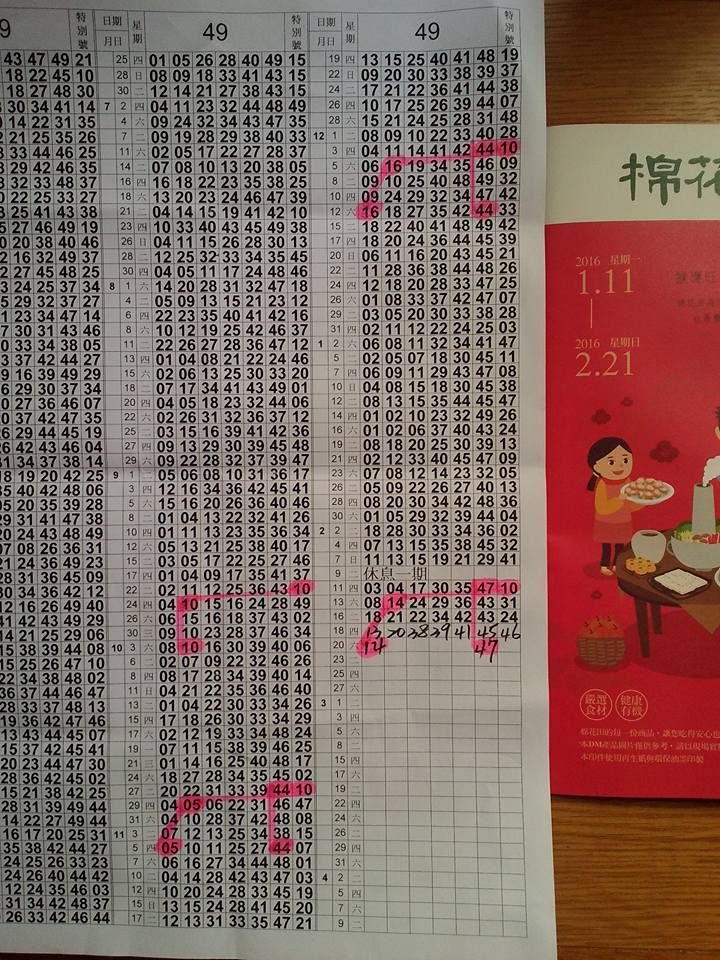 9 特別號
43 47 49 21
18 22 45 10
18 27 48 30
30 34 41 14
14 22 31 35
21 25 35 26
33 44 46 25
29 42 46 35
32 33 48 37
22 25 33 27
25 41 43 38
27 46 49 19
20 38 40 46
16 32 49 37
27 45 48 25
24 25 37 34
29 32 37 27
23 34 47 14
30 31 43 46
33 34 38 05
37 42 44 27
16 39 49 29
29 30 37 34
27 36 46 07
37 42 47 35
29 44 45 19
26 43 46 04
34 37 38 14
18 19 20 42 25
35 40 42 48 06
20 35 39 28
29 31 41 47 38
24 43 48 49
07 08 26 36 31
21 24 36 49 23
31 36 45 09
34 36 42 12
16 26 49 40
24 39 44 06
21 25 29 06
38 39 44 08
15 25 26 47 10
34 38 48 02
37 44 46 47
33 37 48 13
36 42 47 46
43 44 45 07
37 42 45 41
23 44 47 30
36 42 45 02
21 38 42 25
31 39 49 44
22 27 49 44
16 17 20 25 31
35 38 42 44 27
24 25 26 33 23
24 26 40 44 42
12 24 35 46 03
21 34 38 48 17
26 33 42 46 44
日期 月日 星期 49 特別號
25 四 01 05 26 28 40 49 15
28 日 08 09 18 33 41 43 15
30 二 12 14 21 27 38 43 15
7 2 四 04 11 23 32 44 48 49
4 六 09 24 32 34 43 47 35
7 二 09 19 28 29 38 40 33
11 六 02 05 17 22 27 28 37
14 二 07 08 10 13 20 38 05
16 四 16 18 22 23 35 38 25
18 六 13 20 23 24 46 47 39
21 二 04 14 15 19 41 42 10
23 四 10 33 40 43 45 49 38
26 日 04 11 15 26 28 30 13
28 二 12 25 32 33 34 35 45
30 四 04 05 11 17 24 48 46
8 1 六 14 20 28 31 32 47 18
4 二 05 09 13 15 21 23 12
6 四 22 23 35 40 41 42 16
8 六 10 12 19 25 42 46 37
11 二 22 26 27 28 36 47 12
13 四 01 04 08 21 22 24 46
15 六 02 06 13 25 30 33 20
18 二 07 17 34 41 43 49 01
20 四 04 05 18 23 32 44 06
22 六 02 26 31 32 36 37 12
25 二 03 15 16 39 41 42 36
27 四 09 13 29 30 39 45 48
29 六 09 22 28 32 37 39 47
9 1 二 05 06 08 10 31 36 17
3 四 12 16 34 36 42 45 41
5 六 15 16 20 26 36 40 46
8 二 01 04 13 22 32 41 26
10 四 01 11 13 23 35 36 34
12 六 05 13 21 25 38 40 17
15 二 03 05 17 22 25 27 46
17 四 01 04 09 17 35 41 37
22 二 02 11 12 25 36 43 10
24 四 04 10 15 16 24 28 49
26 六 06 15 16 18 37 43 02
30 三 09 10 23 28 37 46 34
10 3 六 08 10 16 30 39 40 06
6 二 02 07 09 22 32 46 26
8 四 08 17 28 34 39 40 14
11 日 04 21 22 35 36 46 40
13 二 01 04 22 30 33 34 26
15 四 17 18 26 30 33 34 29
17 六 02 12 19 33 34 48 24
19 一 07 11 15 38 39 46 25
21 三 01 14 16 25 40 48 17
24 六 18 27 28 34 35 45 02
27 二 20 22 31 33 39 44 10
29 四 04 05 06 22 31 46 47
31 六 04 20 28 37 42 48 08
11 3 二 07 12 13 25 34 38 15
5 四 05 10 11 25 27 44 07
7 六 06 16 27 34 44 48 01
10 二 04 14 28 42 43 47 03
12 四 10 20 24 28 33 45 19
15 日 13 15 24 28 41 45 20
17 二 12 13 31 33 35 47 21
日期 月日 星期 49 特別號
19 四 13 15 25 40 41 48 19
22 日 09 20 30 33 38 39 37
24 二 17 21 22 36 41 44 38
26 四 10 17 25 26 39 44 07
28 六 15 21 24 25 28 31 48
12 1 二 08 09 10 22 33 40 28
3 四 04 11 14 41 42 44 10
5 六 06 16 19 34 35 46 09
8 二 09 10 25 40 48 49 32
10 四 09 24 29 32 34 47 42
12 六 16 18 27 35 42 44 33
15 二 18 22 40 41 48 49 42
17 四 18 20 24 36 44 45 39
20 日 06 11 16 20 43 45 21
22 二 11 28 36 38 44 48 26
24 四 12 18 20 28 33 47 25
26 六 01 08 33 37 42 47 07
29 二 03 05 20 30 33 38 28
31 四 02 11 12 22 24 25 03
1 2 六 06 08 11 32 34 41 47
5 二 02 05 07 18 30 45 11
7 四 06 09 11 29 43 47 08
10 日 04 08 15 18 30 45 38
12 二 08 13 15 35 44 45 47
14 四 01 02 10 23 32 49 26
16 六 01 02 06 37 40 43 24
19 二 18 18 20 25 30 39 13
21 四 02 12 33 40 45 47 09
23 六 07 08 12 14 23 32 05
26 二 05 09 22 26 27 40 13
28 四 08 20 30 34 42 48 36
30 六 01 05 29 32 39 44 04
2 2 二 18 28 30 33 34 36 02
4 四 07 13 15 35 38 45 32
7 日 11 13 15 19 21 29 41
9 二 休息一期
11 四 03 04 17 30 35 47 10
13 六 08 14 24 29 36 43 31
16 二 18 21 22 34 42 43 24
18 四 13 30 38 39 41 45 46
20 六 14 47
23 二
25 四
27 六
3 1 二
3 四
5 六
8 二
10 四
12 六
15 二
17 四
19 六
22 二
24 四
26 六
29 二
31 四
4 2 六
5 二
7 四
9 六
棉花
2016 星期一
1.11
2016 星期日
2.21
嚴選食材
健康有機
本DM產品圖片僅供參考,請以現場
本印件使用再生紙與環保油墨印製